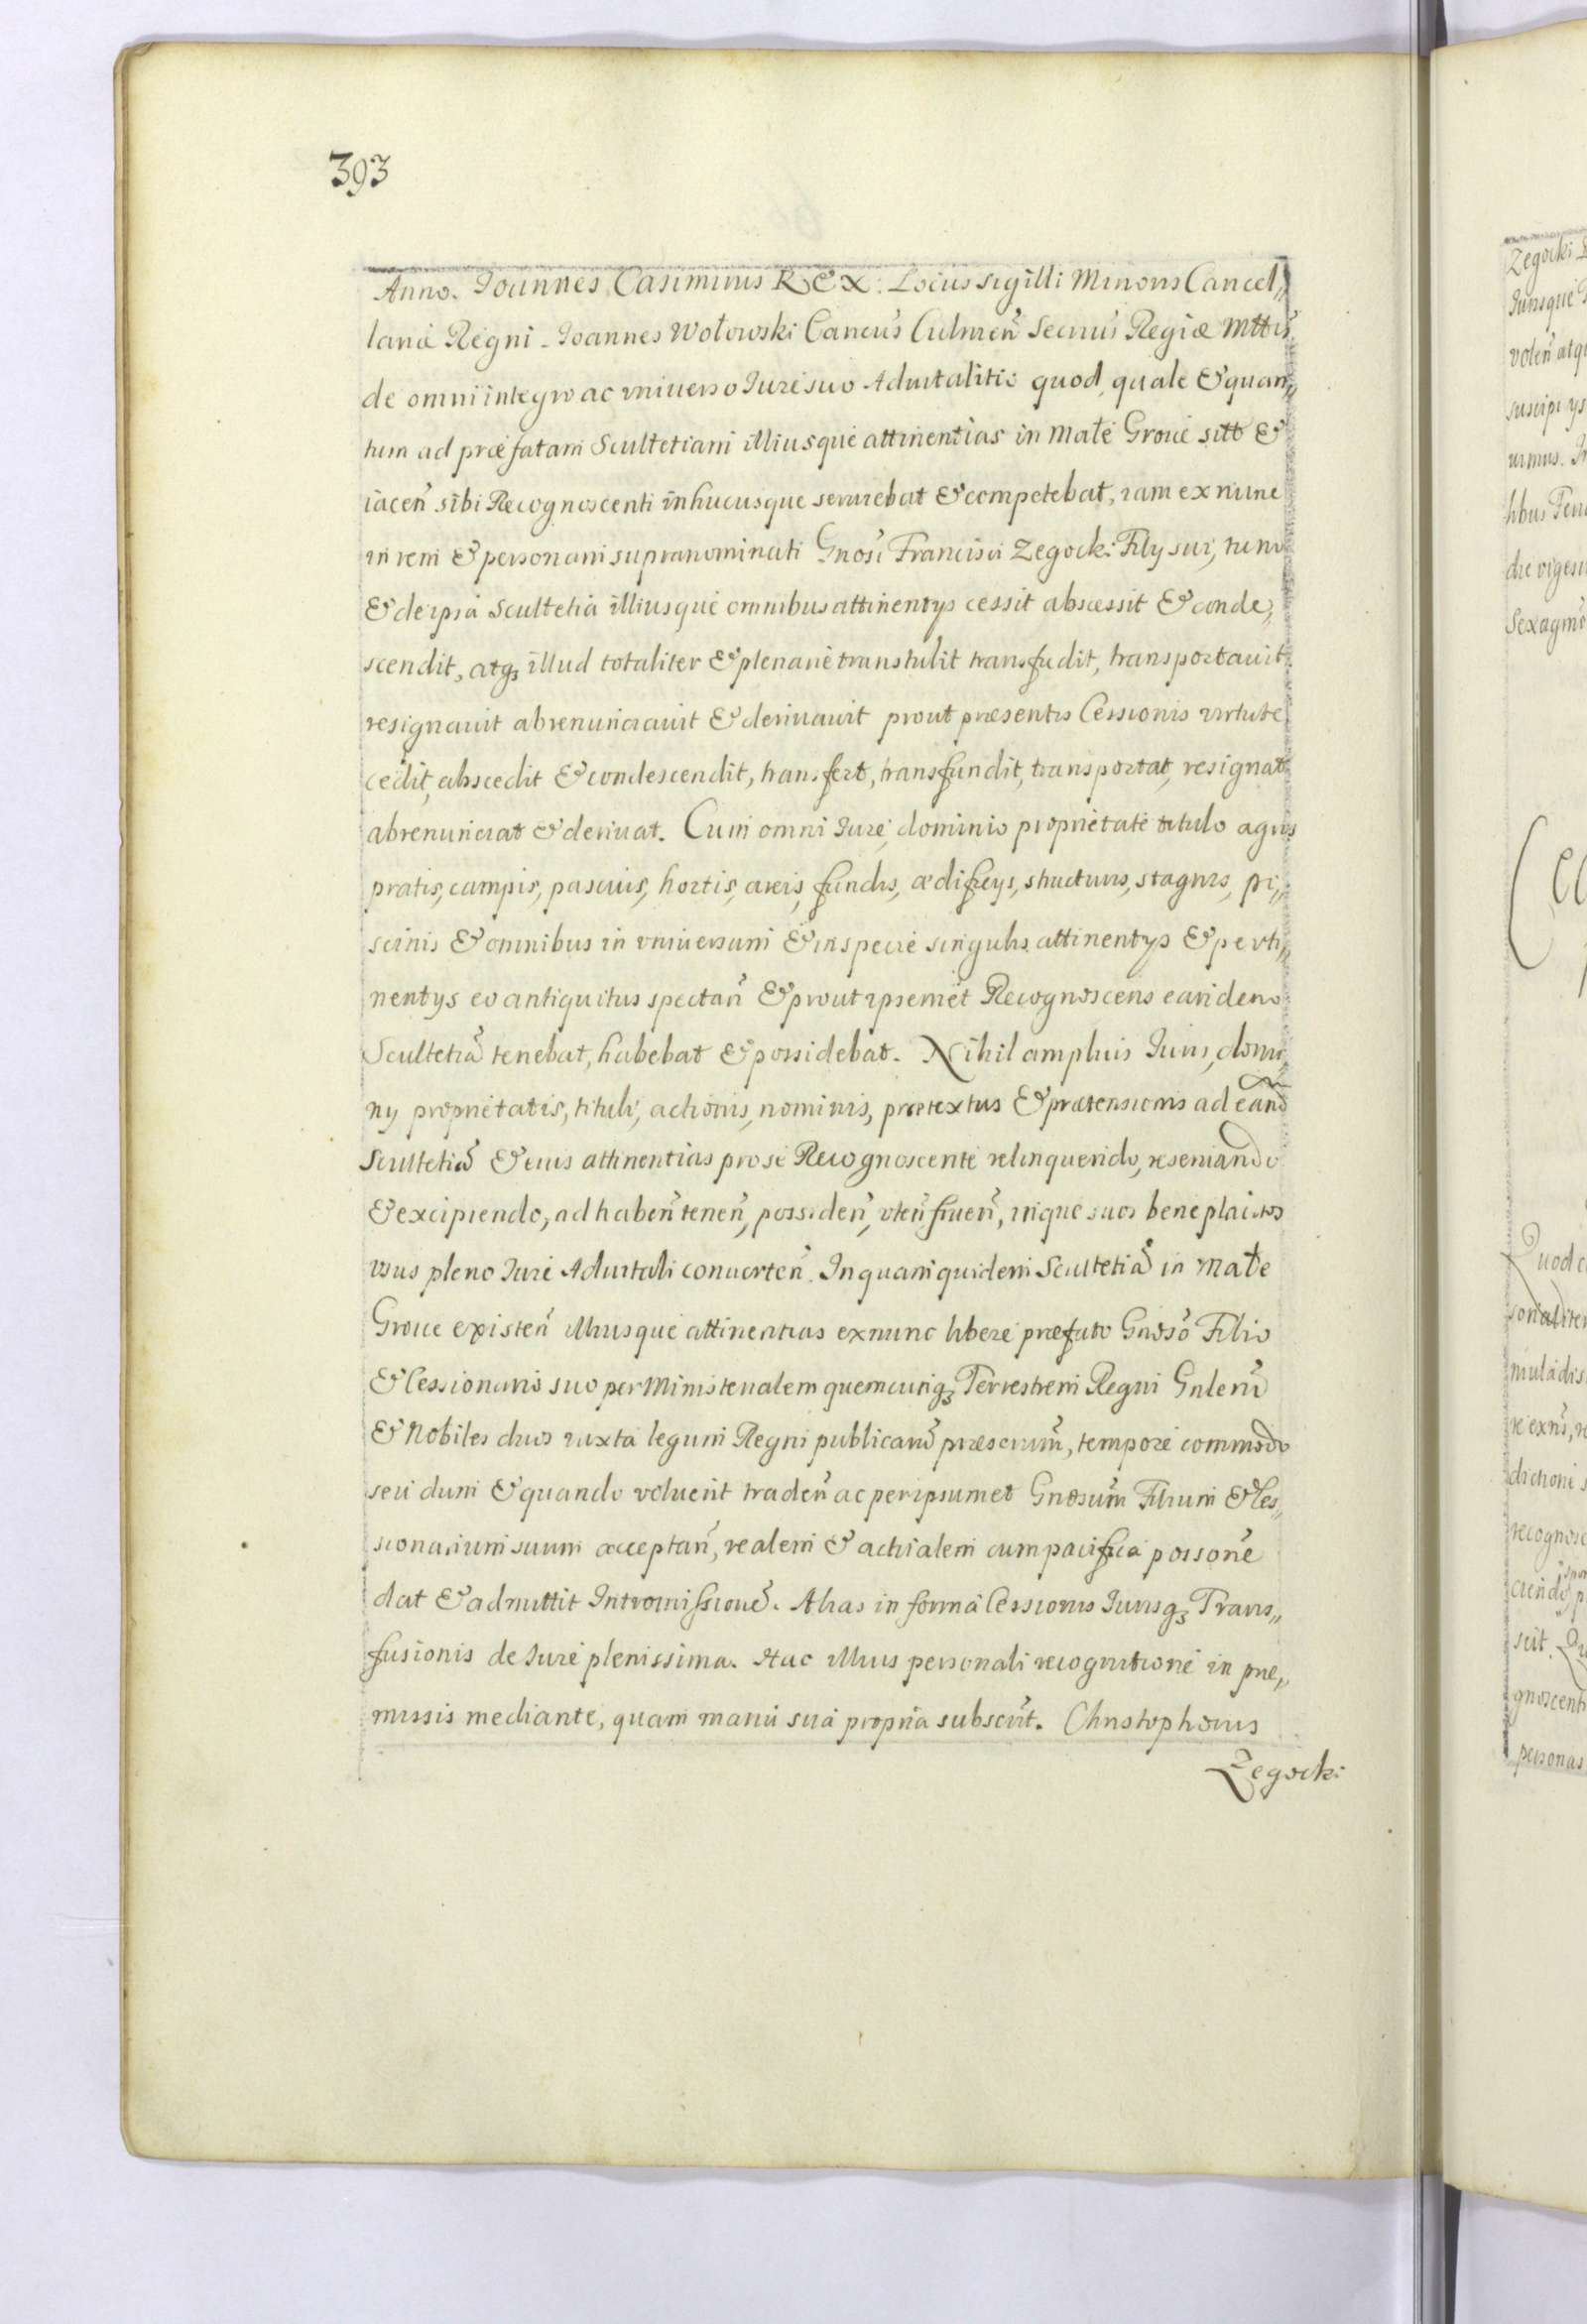 393
Anno. Joannes Casimirus REX. Locus sigilli Minoris Cancel„
lariæ Regni. Joannes Wołowski Cancus̃ Culmeñ Secrius̃ Regiæ Mttis̃
de omni integro ac vniuerso Jure suo Aduitalitio quod, quale & quan„
tum ad præfatam Scultetiam illiusque attinentias in Małe Groue sitt &
iaceñ sibi Recognoscenti in hucusque seruiebat & competebat, iam ex nunc
in rem & personam supranominati Gnosi Francisci Zegocki Filij sui, tum
& de ipsa Scultetia illiusque omnibus attinentijs cessit abscessit & conde„
scendit, atq3 illud totaliter & plenarie transtulit transfudit, transportauit
resignauit abrenunciauit & deriuauit prout præsentis Cessionis virtute
cedit, abscedit & condescendit, transfert, transfundit, transportat, resignat
abrenunciat & deriuat. Cum omni Jure, dominio proprietate titulo agris
pratis, campis, pascuis, hortis, areis, fundis, ædificijs, structuris, stagnis, pi„
scinis & omnibus in vniuersum & in specie singulis attinentijs & perti„
nentijs eo antiquitus spectañ & prout ipsemet Recognoscens eandem
Scultetiã tenebat, habebat & possidebat. Nihil amplius Juris, domi„
nij proprietatis, tituli, actionis, nominis, prætextus & prætensionis ad eand̃
Scultetiã & eius attinentias pro se Recognoscente relinquendo, reseruando
& excipiendo, ad habeñ teneñ, possideñ, vteñ frueñ, inque suos beneplacitos
vsus pleno Jure Aduitali conuerteñ. In quam quidem Scultetiã in Małe
Groue existeñ illiusque attinentias ex nunc libere præfato Gnoso Filio
& Cessionario suo per Ministerialem quemcunq3 Terrestrem Regni Gnlem̃
& Nobiles duos iuxta legum Regni publicarũ præscrium̃, tempore commodo
seu dum & quando voluerit tradeñ ac per ipsumet Gnosum̃ Filium & Ces„
sionarium suum acceptañ, realem & actualem cum pacifica possone
dat & admittit Intromissionẽ. Alias in forma Cessionis Jurisq3 Trans„
fusionis de Jure plenissima. Hac illius personali recognitione in præ„
missis mediante, quam manu sua propria subscrit̃. Christophorus
Zegocki